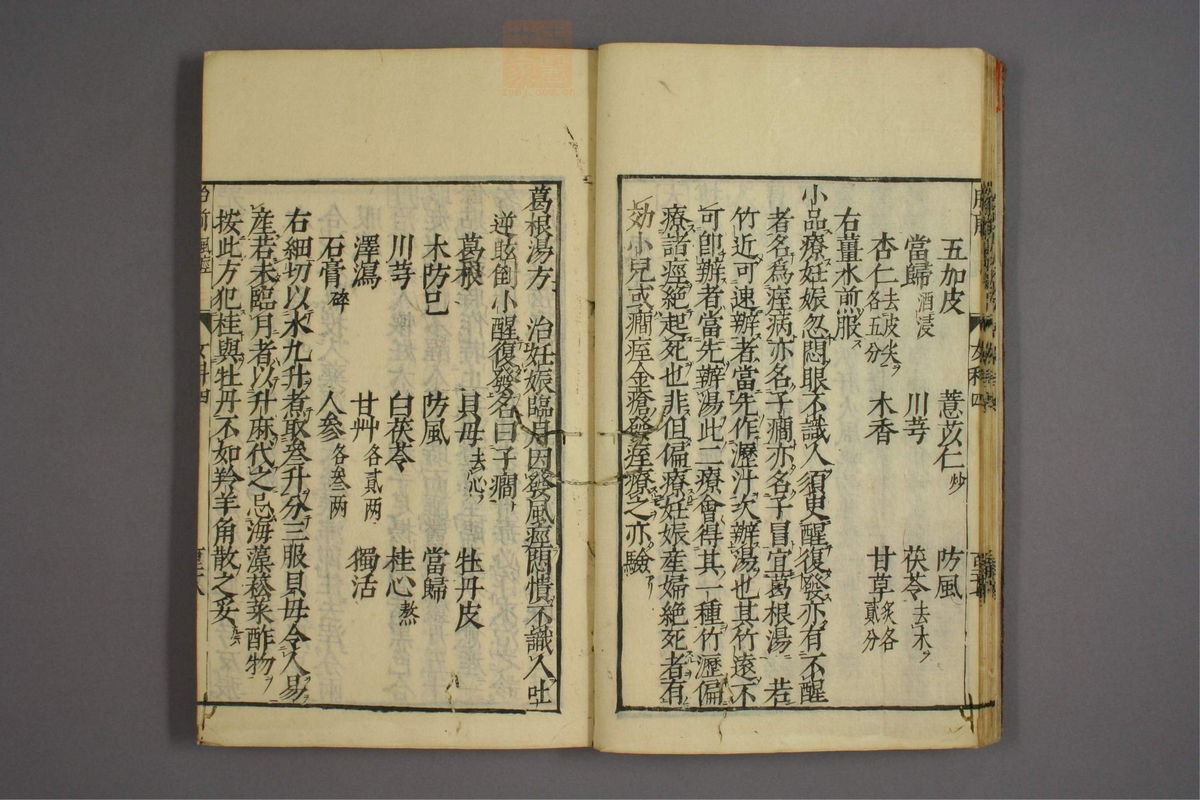 五加皮 薏苡仁炒 防風
當歸酒浸 川芎 茯苓去木
杏仁去皮尖各五分 木香 甘草炙各貳分
右薑水煎服
小品療妊娠忽悶眼不識人須臾醒復發亦有不醒
者名為痓病亦名子癇亦名子冒宜葛根湯 若
竹近可速辦者當先作瀝汁次辦湯也其竹遠不
可即辦者當先辦湯此二療會得其一種竹瀝偏
療諸痙絕起死也非但偏療妊娠産婦絕死者有
効小兒或癇痓金瘡發痓療之亦驗
葛根湯方 治妊娠臨月因發風痙悶憒不識人吐
逆眩倒小醒復發名曰子癇
葛根 貝母去心 牡丹皮
木防己 防風 當歸
川芎 白茯苓 桂心熬
澤瀉 甘艸各貳两 獨活
石膏碎 人參各叁两
右細切以水九升煮取叁升分三服貝母令人易
産若未臨月者以升麻代之忌海藻菘菜酢物
按此方犯桂與牡丹不如羚羊角散之妥